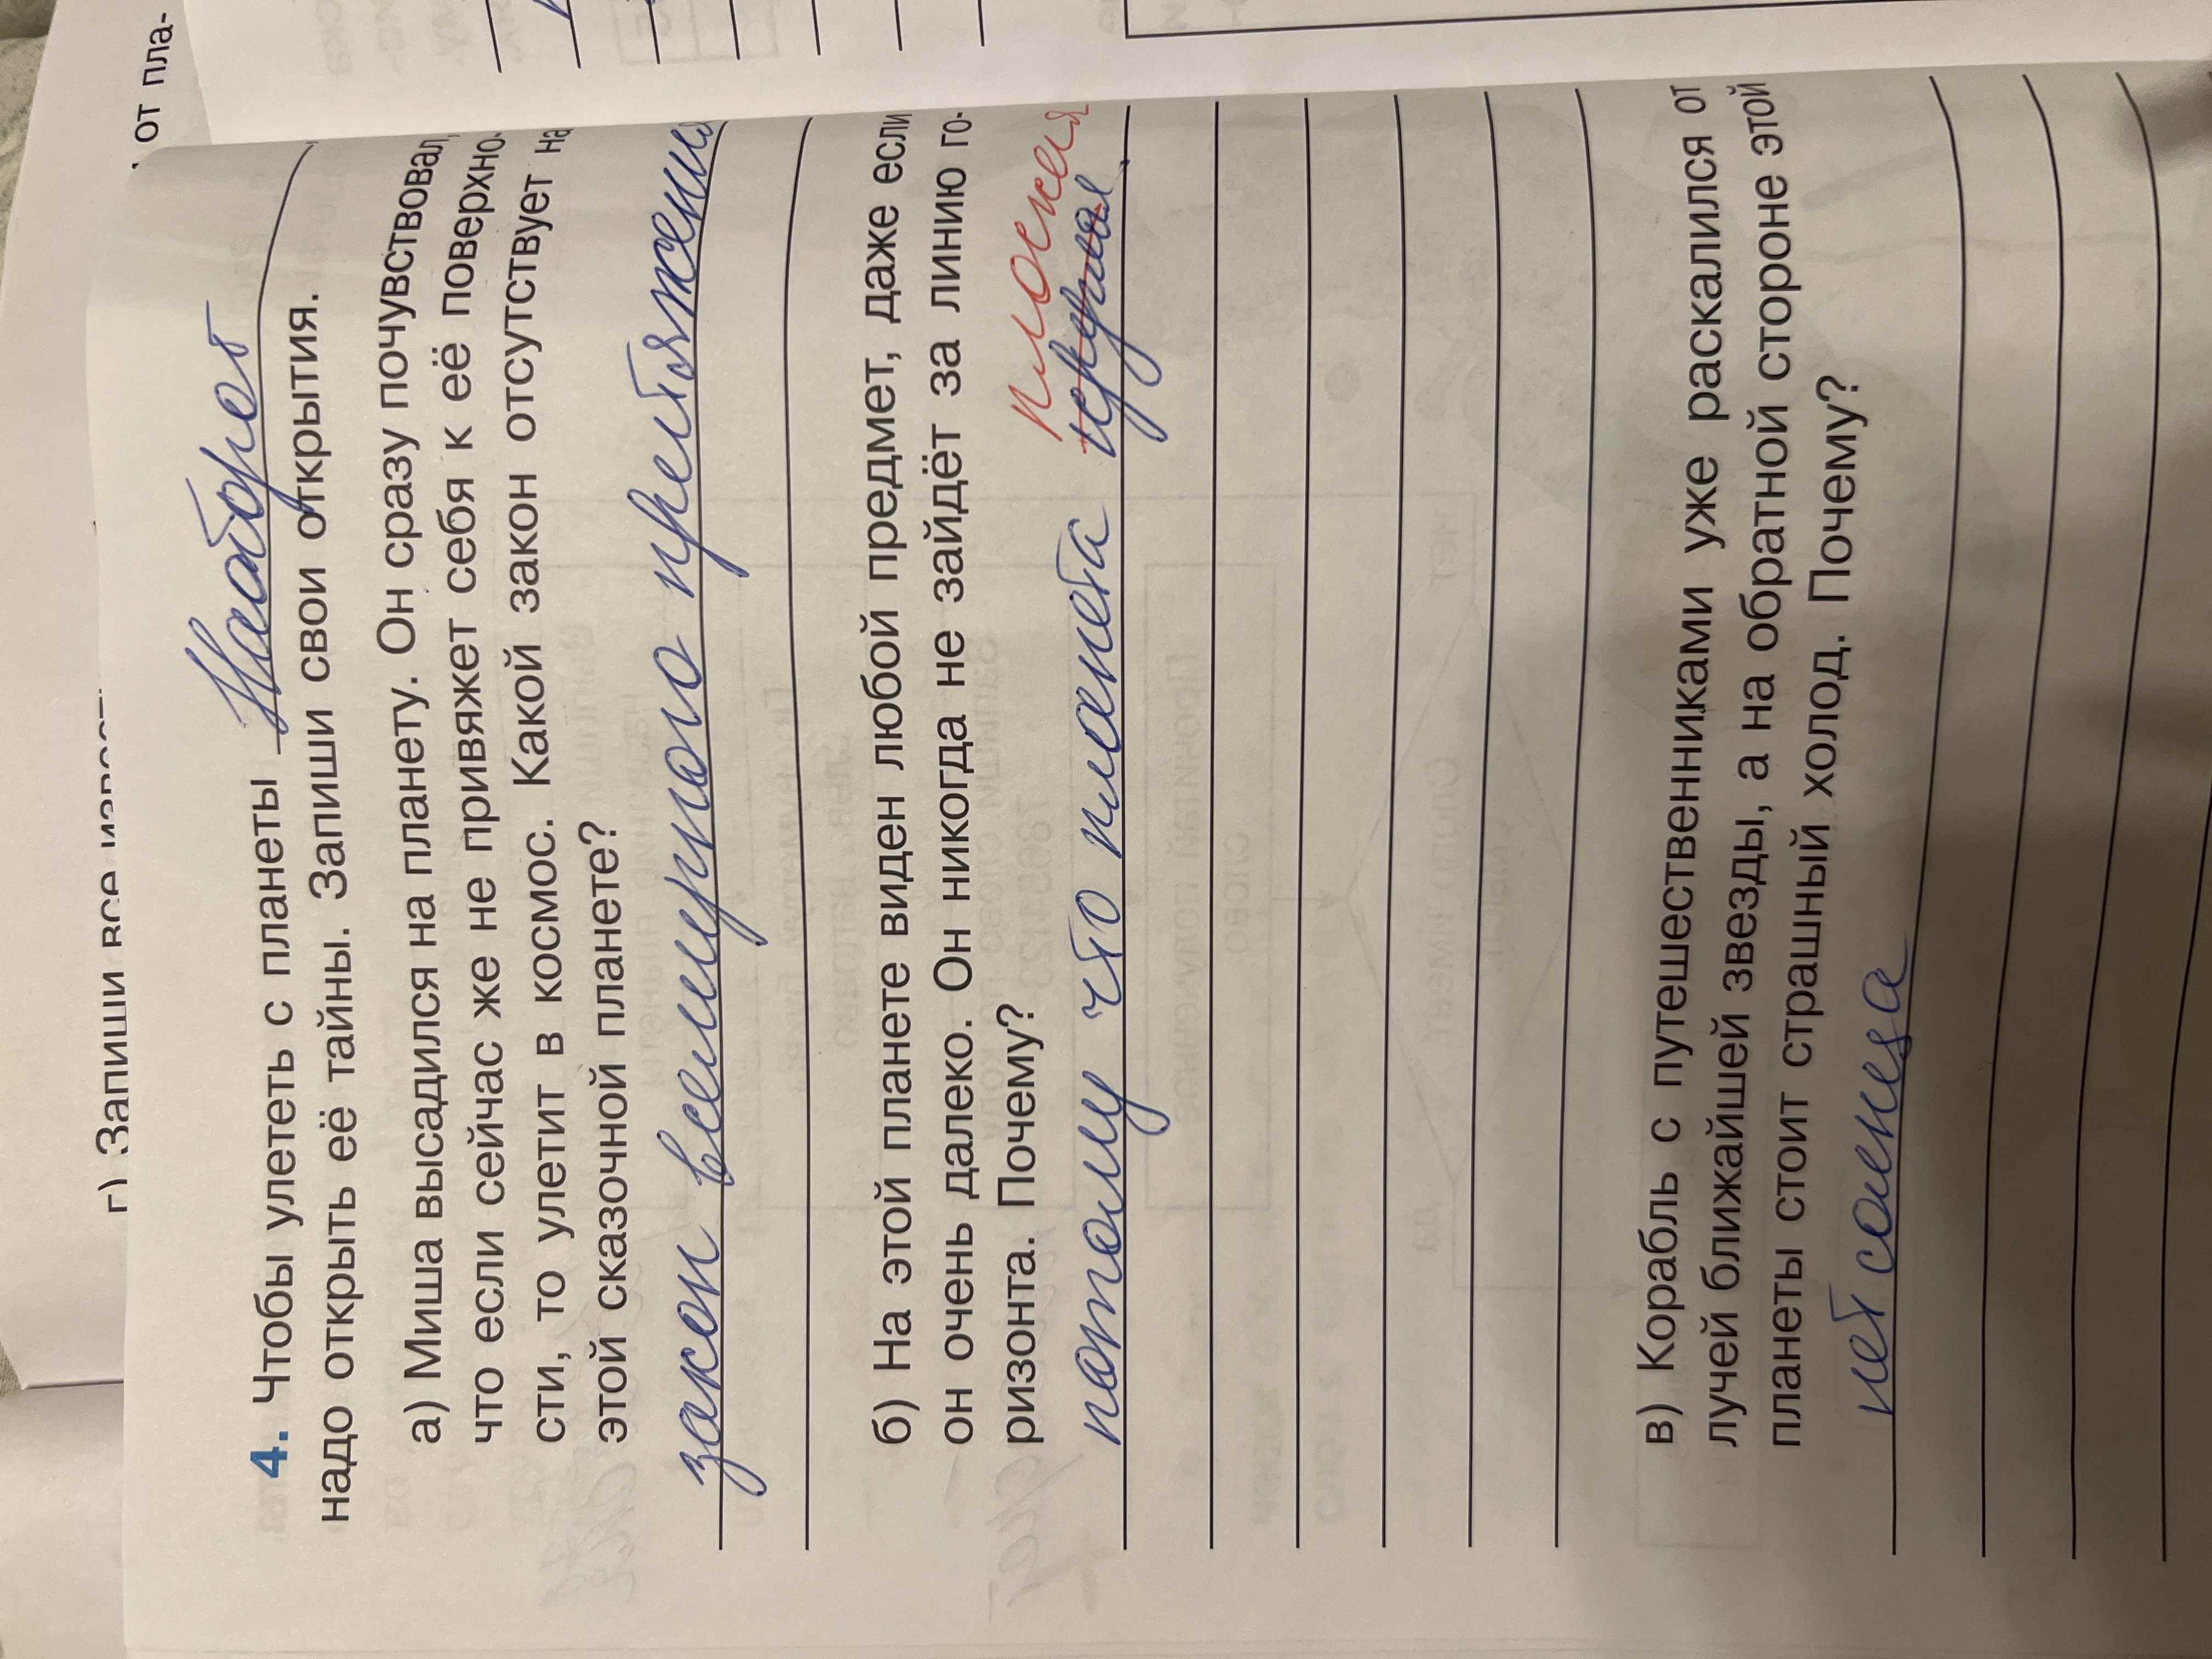 от пла-
г) Запиши все
4. Чтобы улететь с планеты
надо открыть её тайны. Запиши свои открытия.
а) Миша высадился на планету. Он сразу почувствовал,
что если сейчас же не привяжет себя к её поверхно-
сти, то улетит в космос. Какой закон отсутствует на
этой сказочной планете?
закон всемирного
б) На этой планете виден любой предмет, даже если
он очень далеко. Он никогда не зайдёт за линию го-
ризонта. Почему?
плоская
потому что планета
в) Корабль с путешественниками уже раскалился от
лучей ближайшей звезды, а на обратной стороне этой
планеты стоит страшный холод. Почему?
нет солнца